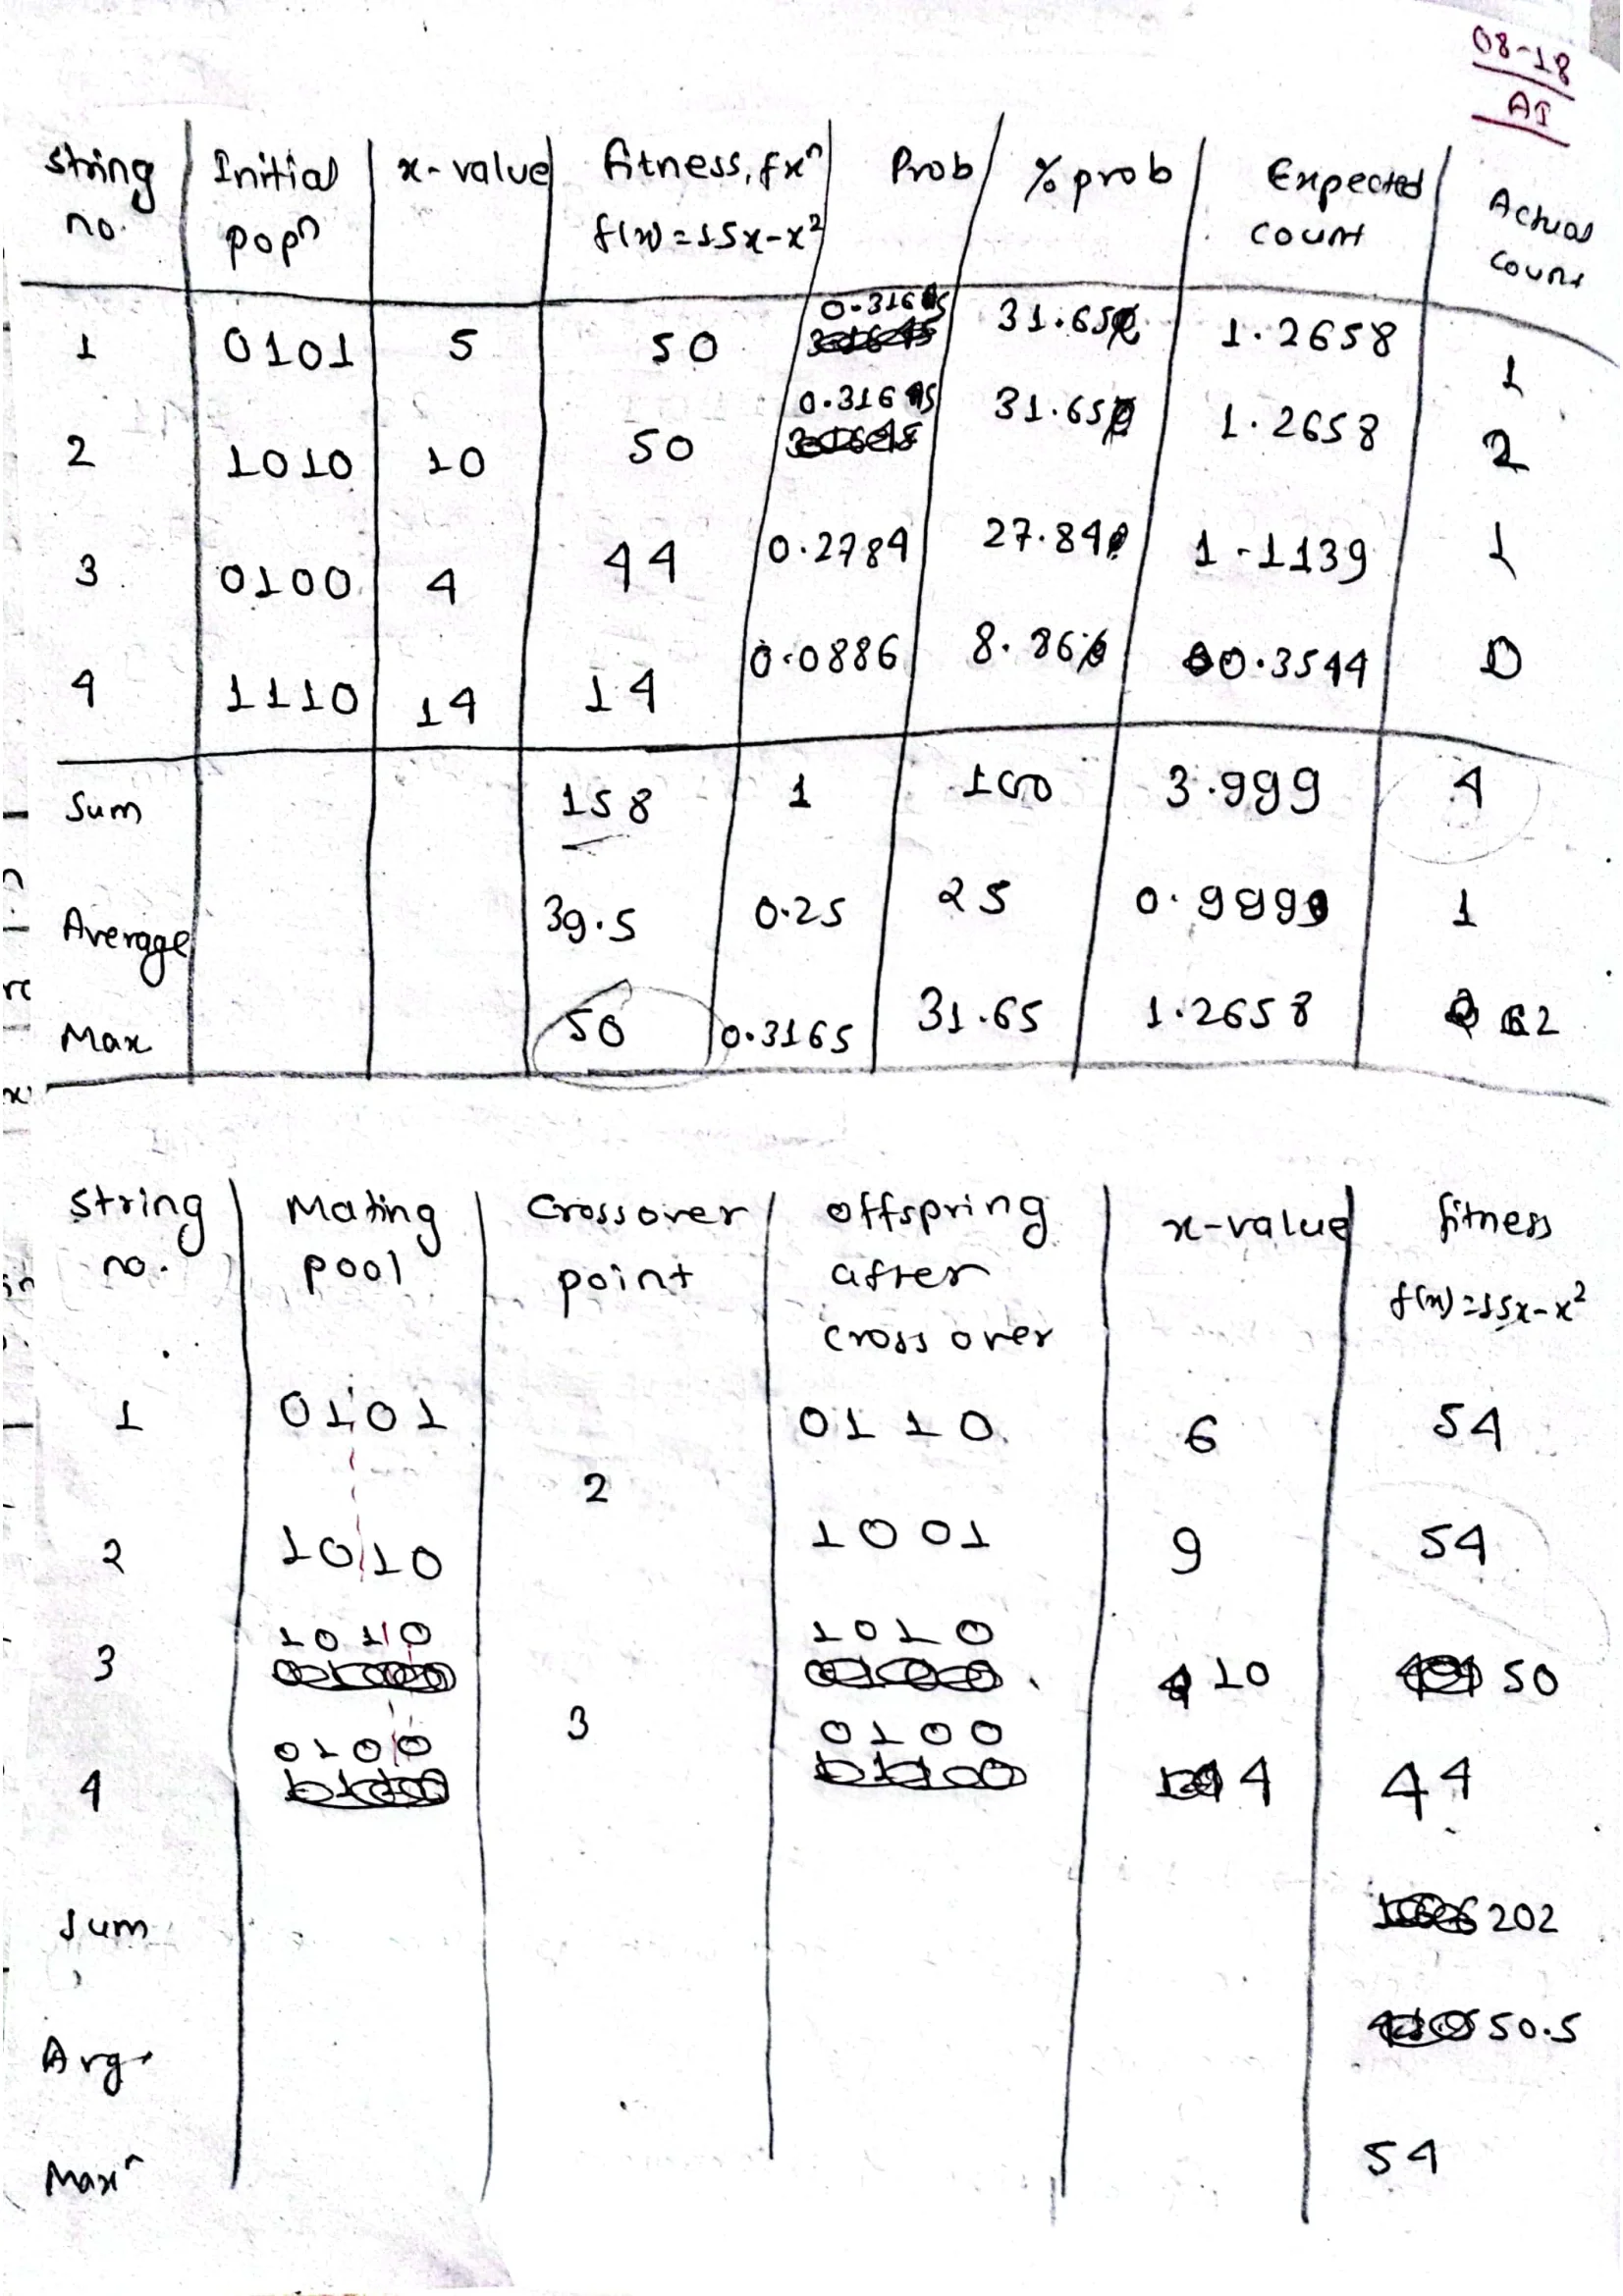 08-18
AI
string no. | Initial popn | x-value | fitness, fxn f(x)=15x-x² | Prob | % prob | Expected count | Actual count
1 | 0101 | 5 | 50 | 0.3165 | 31.65 | 1.2658 | 1
2 | 1010 | 10 | 50 | 0.3165 | 31.65 | 1.2658 | 2
3 | 0100 | 4 | 44 | 0.2784 | 27.84 | 1.1139 | 1
4 | 1110 | 14 | 14 | 0.0886 | 8.86 | 0.3544 | 0
Sum | 158 | 1 | 100 | 3.999 | 4
Average | 39.5 | 0.25 | 25 | 0.9999 | 1
Max | 50 | 0.3165 | 31.65 | 1.2658 | 2
string no. | Mating pool | Crossover point | offspring after cross over | x-value | fitness f(x)=15x-x²
1 | 0101 | 0110 | 6 | 54
2
2 | 1010 | 1001 | 9 | 54
3 | 1010 | 1010 | 10 | 50
3
4 | 0100 | 0100 | 4 | 44
Sum | 202
Avg. | 50.5
Maxn | 54